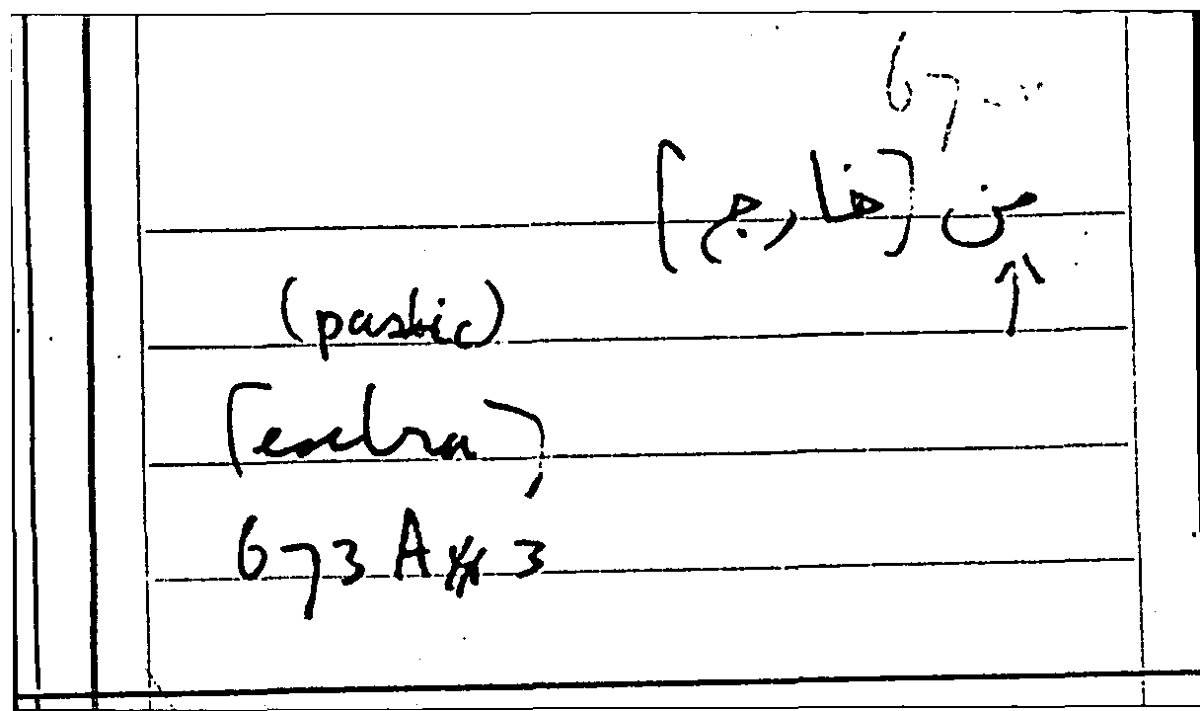 67
من [خارج]
(pastic)
[extra]
673 A 3